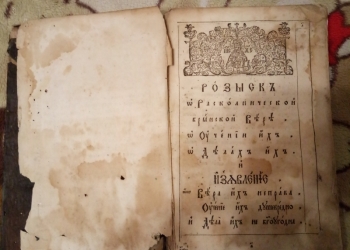 РО́ЗЫСКЪ
ѡ Раско́лнической
бры́нской Вѣ́рѣ .
ѡ Оу҆че́нїи и҆́хъ .
ѡ Дѣла́хъ и҆́хъ .
И
И҆З̾ѦВЛЕ́НЇЕ
Вѣ́ра и҆́хъ непра́ва .
Оу҆че́нїе и҆́хъ
и҆ Дѣла̀ и҆́хъ не бг҃оуго́дна